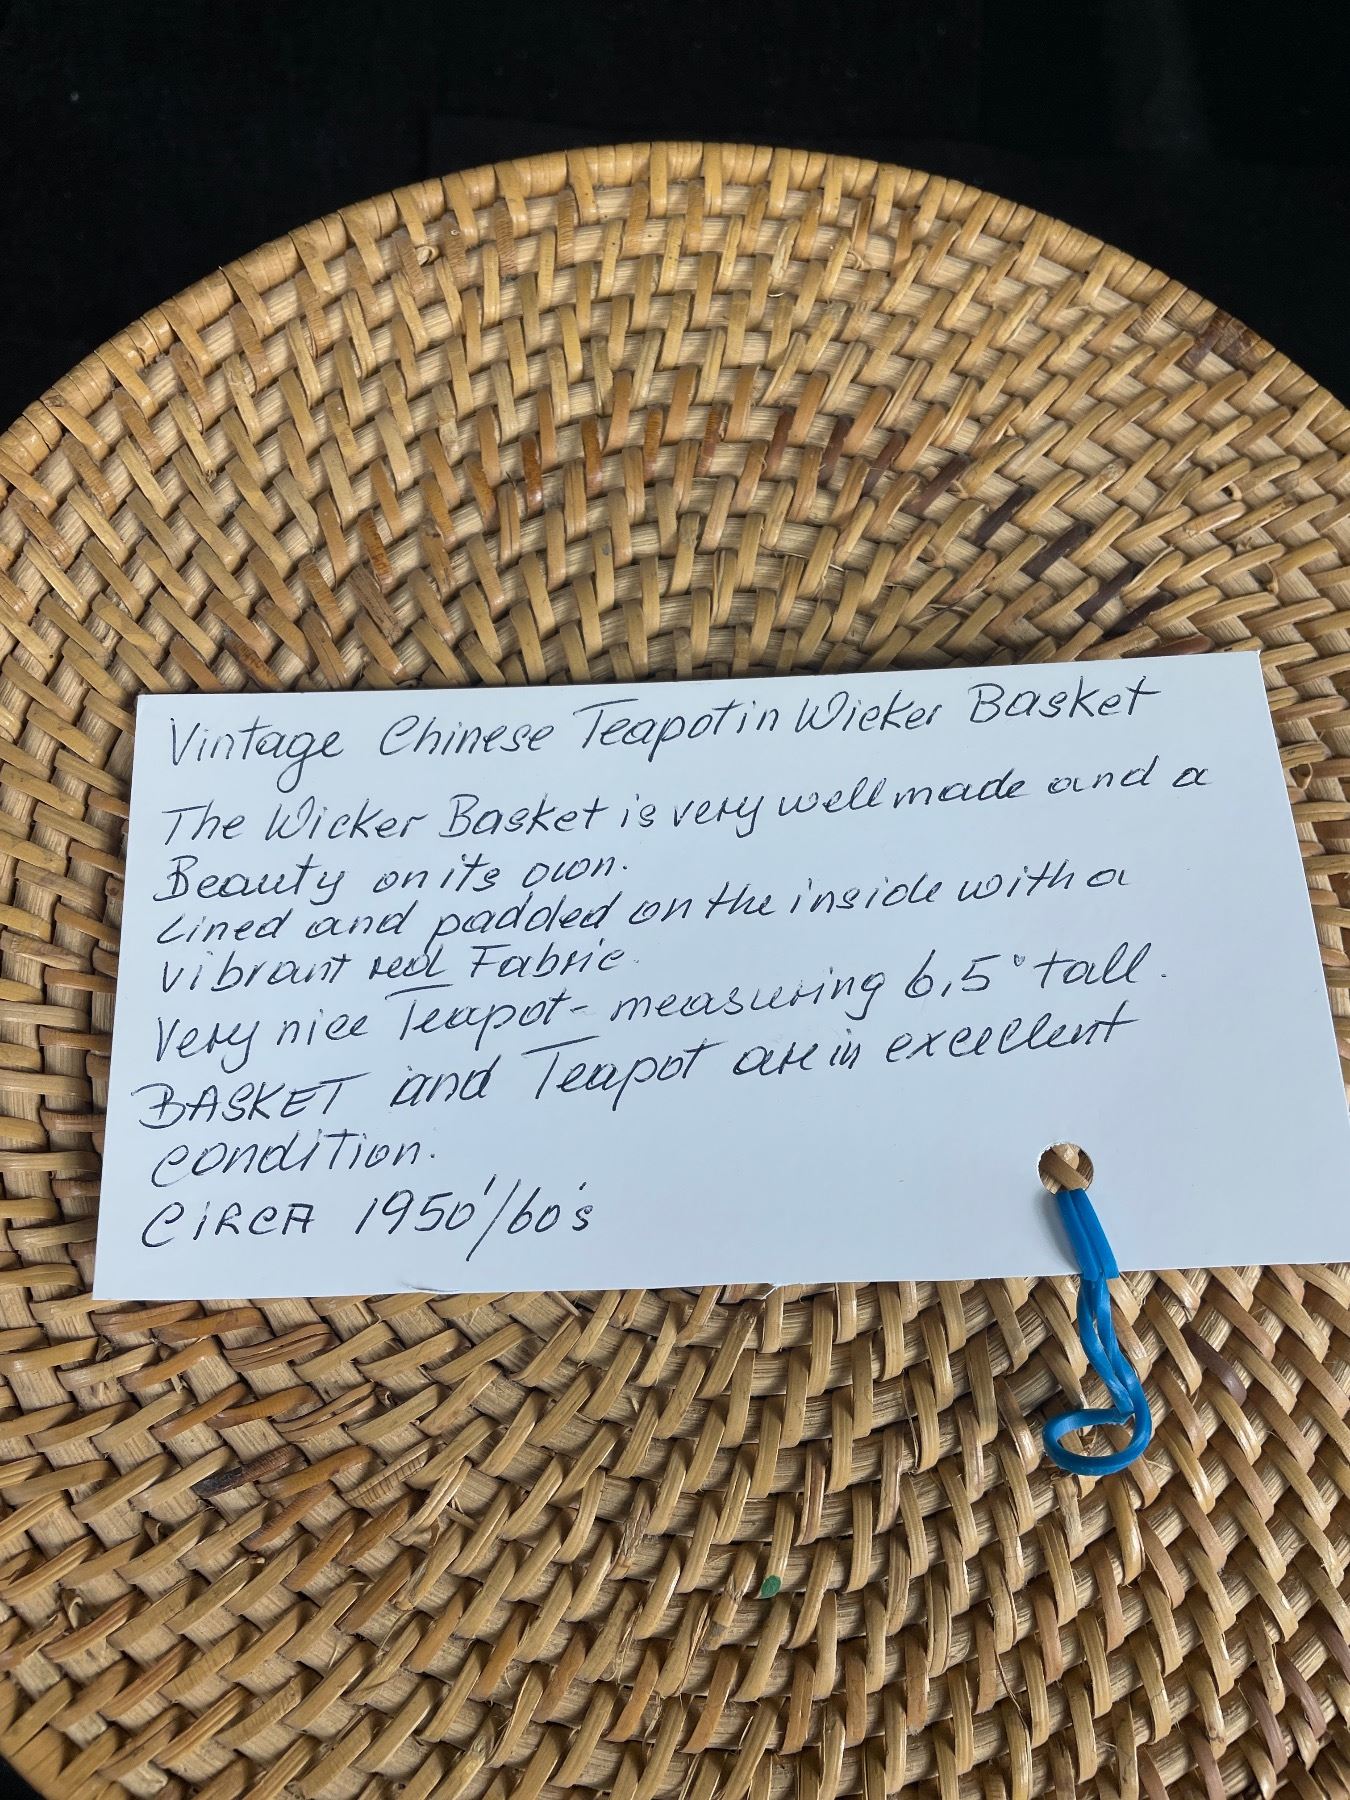 Vintage Chinese Teapot in Wicker Basket
The Wicker Basket is very well made and a
Beauty on its own.
Lined and padded on the inside with a
vibrant red Fabric.
Very nice Teapot - measuring 6,5" tall.
BASKET and Teapot are in excellent
condition.
CIRCA 1950'/60's